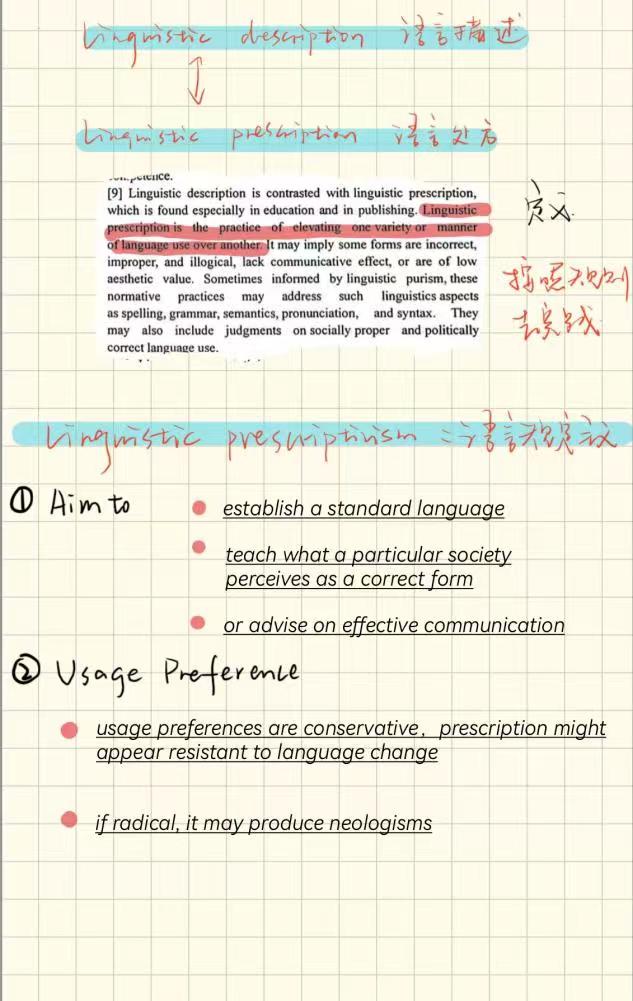 Linguistic description 语言描述
Linguistic prescription 语言处方
[9] Linguistic description is contrasted with linguistic prescription,
which is found especially in education and in publishing. Linguistic
prescription is the practice of elevating one variety or manner
of language use over another. It may imply some forms are incorrect,
improper, and illogical, lack communicative effect, or are of low
aesthetic value. Sometimes informed by linguistic purism, these
normative practices may address such linguistics aspects
as spelling, grammar, semantics, pronunciation, and syntax. They
may also include judgments on socially proper and politically
correct language use.
定义
按照规则
去实践
Linguistic prescriptivism = 语言规定主义
① Aim to
establish a standard language
teach what a particular society
perceives as a correct form
or advise on effective communication
② Usage Preference
usage preferences are conservative, prescription might
appear resistant to language change
if radical, it may produce neologisms